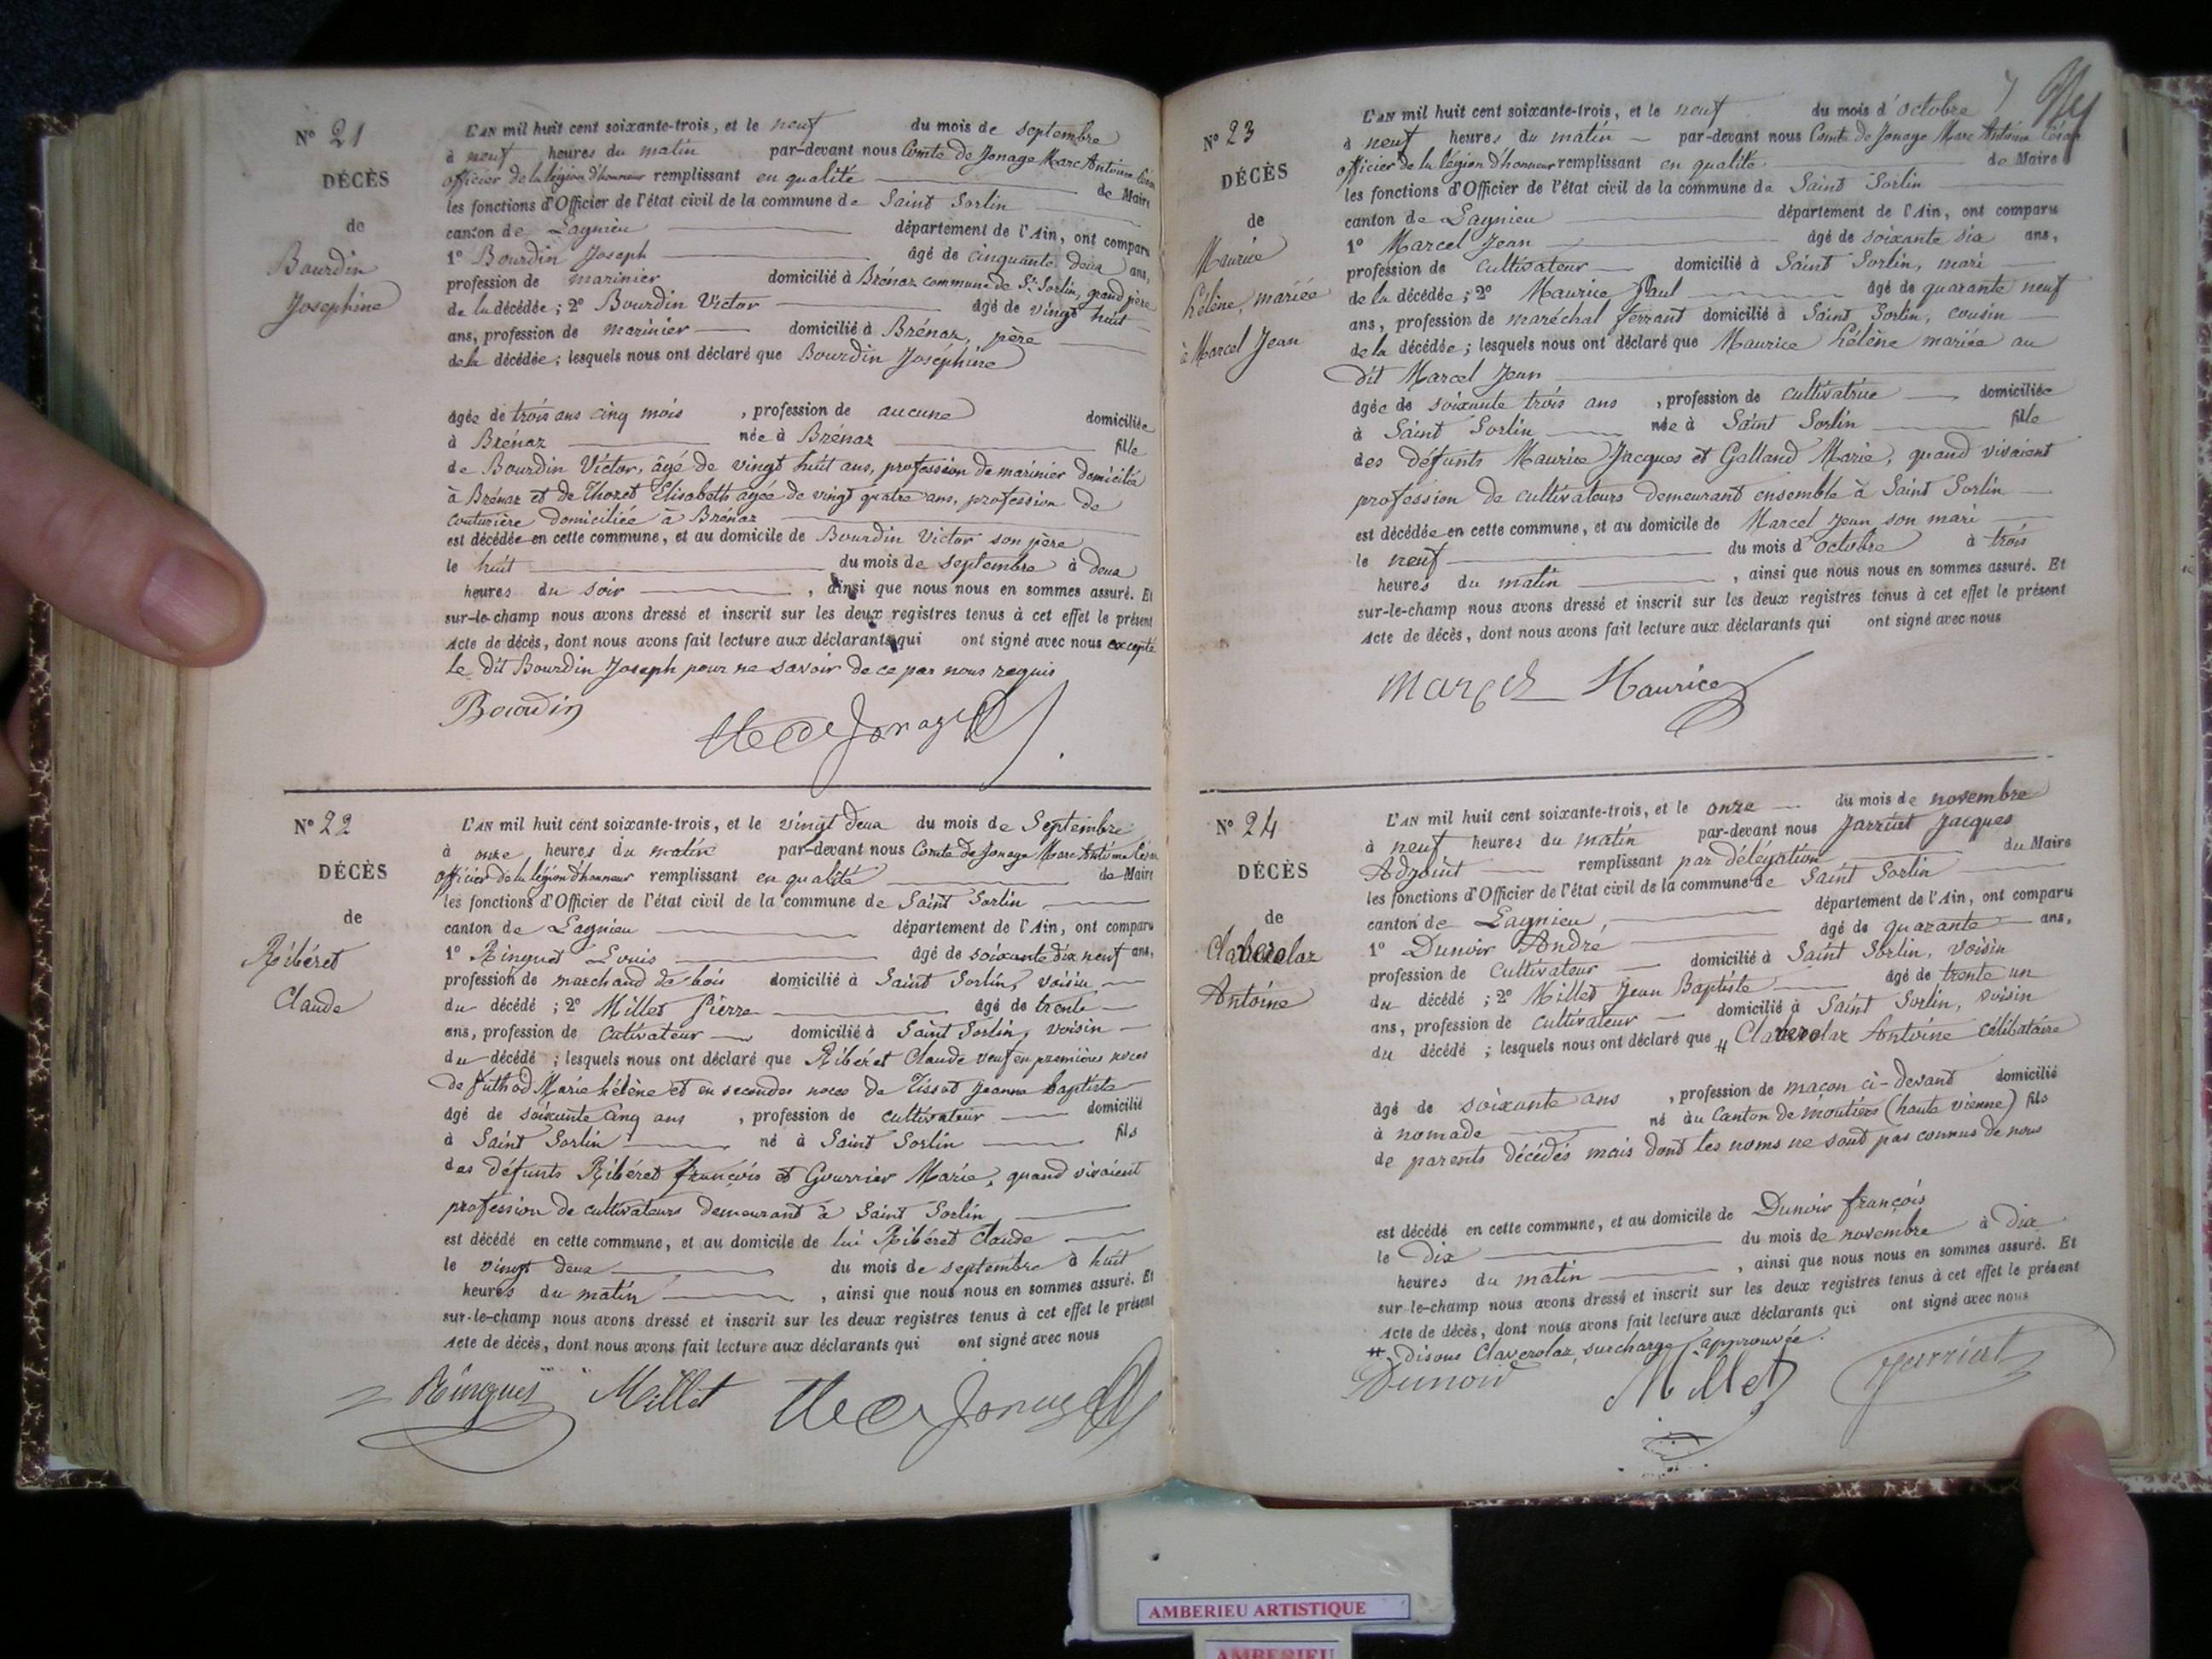 N° 21
DÉCÈS
de
Bourdin
Joséphine
L'AN mil huit cent soixante-trois, et le neuf du mois de septembre
à neuf heures du matin par-devant nous Comte de Jonage Marc Antoine César
officier de la légion d'honneur remplissant en qualité de Maire
les fonctions d'Officier de l'état civil de la commune de Saint Sorlin
canton de Lagnieu département de l'Ain, ont comparu
1° Bourdin Joseph âgé de cinquante deux ans,
profession de marinier domicilié à Brénaz commune de St Sorlin, grand père
de la décédée ; 2° Bourdin Victor âgé de vingt huit
ans, profession de marinier domicilié à Brénaz, père
de la décédée ; lesquels nous ont déclaré que Bourdin Joséphine
âgée de trois ans cinq mois , profession de aucune domiciliée
à Brénaz née à Brénaz fille
de Bourdin Victor, âgé de vingt huit ans, profession de marinier domicilié
à Brénaz et de Thozet Elisabeth agée de vingt quatre ans, profession de
couturière domiciliée à Brénaz
est décédée en cette commune, et au domicile de Bourdin Victor son père
le huit du mois de septembre à deux
heures du soir , ainsi que nous nous en sommes assuré. Et
sur-le-champ nous avons dressé et inscrit sur les deux registres tenus à cet effet le présent
Acte de décès, dont nous avons fait lecture aux déclarants qui ont signé avec nous excepté
le dit Bourdin Joseph pour ne savoir de ce par nous requis
Bourdin
Cte de Jonage
N° 22
DÉCÈS
de
Ribéret
Claude
L'AN mil huit cent soixante-trois, et le vingt deux du mois de Septembre
à onze heures du matin par-devant nous Comte de Jonage Marc Antoine César
officier de la légion d'honneur remplissant en qualité de Maire
les fonctions d'Officier de l'état civil de la commune de Saint Sorlin
canton de Lagnieu département de l'Ain, ont comparu
1° Ringuet Louis âgé de soixante dix neuf ans,
profession de marchand de bois domicilié à Saint Sorlin, voisin
du décédé ; 2° Millet Pierre âgé de trente
ans, profession de cutivateur domicilié à Saint Sorlin, voisin
du décédé ; lesquels nous ont déclaré que Ribéret Claude veuf en premières noces
de Marie hélène et en secondes noces de Tissot Jeanne baptiste
âgé de soixante cinq ans , profession de cultivateur domicilié
à Saint Sorlin né à Saint Sorlin fils
des défunts Ribéret françois et Gourrier Marie, quand vivaient
profession de cultivateurs demeurant à Saint Sorlin
est décédé en cette commune, et au domicile de lui Ribéret Claude
le vingt deux du mois de septembre à huit
heures du matin , ainsi que nous nous en sommes assuré. Et
sur-le-champ nous avons dressé et inscrit sur les deux registres tenus à cet effet le présent
Acte de décès, dont nous avons fait lecture aux déclarants qui ont signé avec nous
Ringuet Millet Cte de Jonage
7
N° 23
DÉCÈS
de
Maurice
hélène, mariée
à Marcel Jean
L'AN mil huit cent soixante-trois, et le neuf du mois d'octobre
à neuf heures du matin par-devant nous Comte de Jonage Marc Antoine César
officier de la légion d'honneur remplissant en qualité de Maire
les fonctions d'Officier de l'état civil de la commune de Saint Sorlin
canton de Lagnieu département de l'Ain, ont comparu
1° Marcel Jean âgé de soixante six ans,
profession de cultivateur domicilié à Saint Sorlin, mari
de la décédée ; 2° Maurice Paul âgé de quarante neuf
ans, profession de maréchal ferrant domicilié à Saint Sorlin, cousin
de la décédée ; lesquels nous ont déclaré que Maurice hélène mariée au
dit Marcel Jean
âgée de soixante trois ans , profession de cultivatrice domiciliée
à Saint Sorlin née à Saint Sorlin fille
des défunts Maurice Jacques et Galland Marie, quand vivaient
profession de cultivateurs demeurant ensemble à Saint Sorlin
est décédée en cette commune, et au domicile de Marcel Jean son mari
le neuf du mois d'octobre à trois
heures du matin , ainsi que nous nous en sommes assuré. Et
sur-le-champ nous avons dressé et inscrit sur les deux registres tenus à cet effet le présent
Acte de décès, dont nous avons fait lecture aux déclarants qui ont signé avec nous
Marcel Maurice
N° 24
DÉCÈS
de
Claverolaz
Antoine
L'AN mil huit cent soixante-trois, et le onze du mois de novembre
à neuf heures du matin par-devant nous Jarriat Jacques
Adjoint remplissant par délégation du Maire
les fonctions d'Officier de l'état civil de la commune de Saint Sorlin
canton de Lagnieu, département de l'Ain, ont comparu
1° Dunoir André âgé de quarante ans,
profession de cultivateur domicilié à Saint Sorlin, voisin
du décédé ; 2° Millet Jean Baptiste âgé de trente un
ans, profession de cultivateur domicilié à Saint Sorlin, voisin
du décédé ; lesquels nous ont déclaré que # Claverolaz Antoine célibataire
âgé de soixante ans , profession de maçon ci-devant domicilié
à nomade né au Canton de moutiers (haute vienne) fils
de parents décédés mais dont les noms ne sont pas connus de nous
est décédé en cette commune, et au domicile de Dunoir françois
le dix du mois de novembre à dix
heures du matin , ainsi que nous nous en sommes assuré. Et
sur-le-champ nous avons dressé et inscrit sur les deux registres tenus à cet effet le présent
Acte de décès, dont nous avons fait lecture aux déclarants qui ont signé avec nous
# Disons Claverolaz, surcharge approuvée.
Dunoir Millet Jarriat
AMBERIEU ARTISTIQUE
AMBERIEU